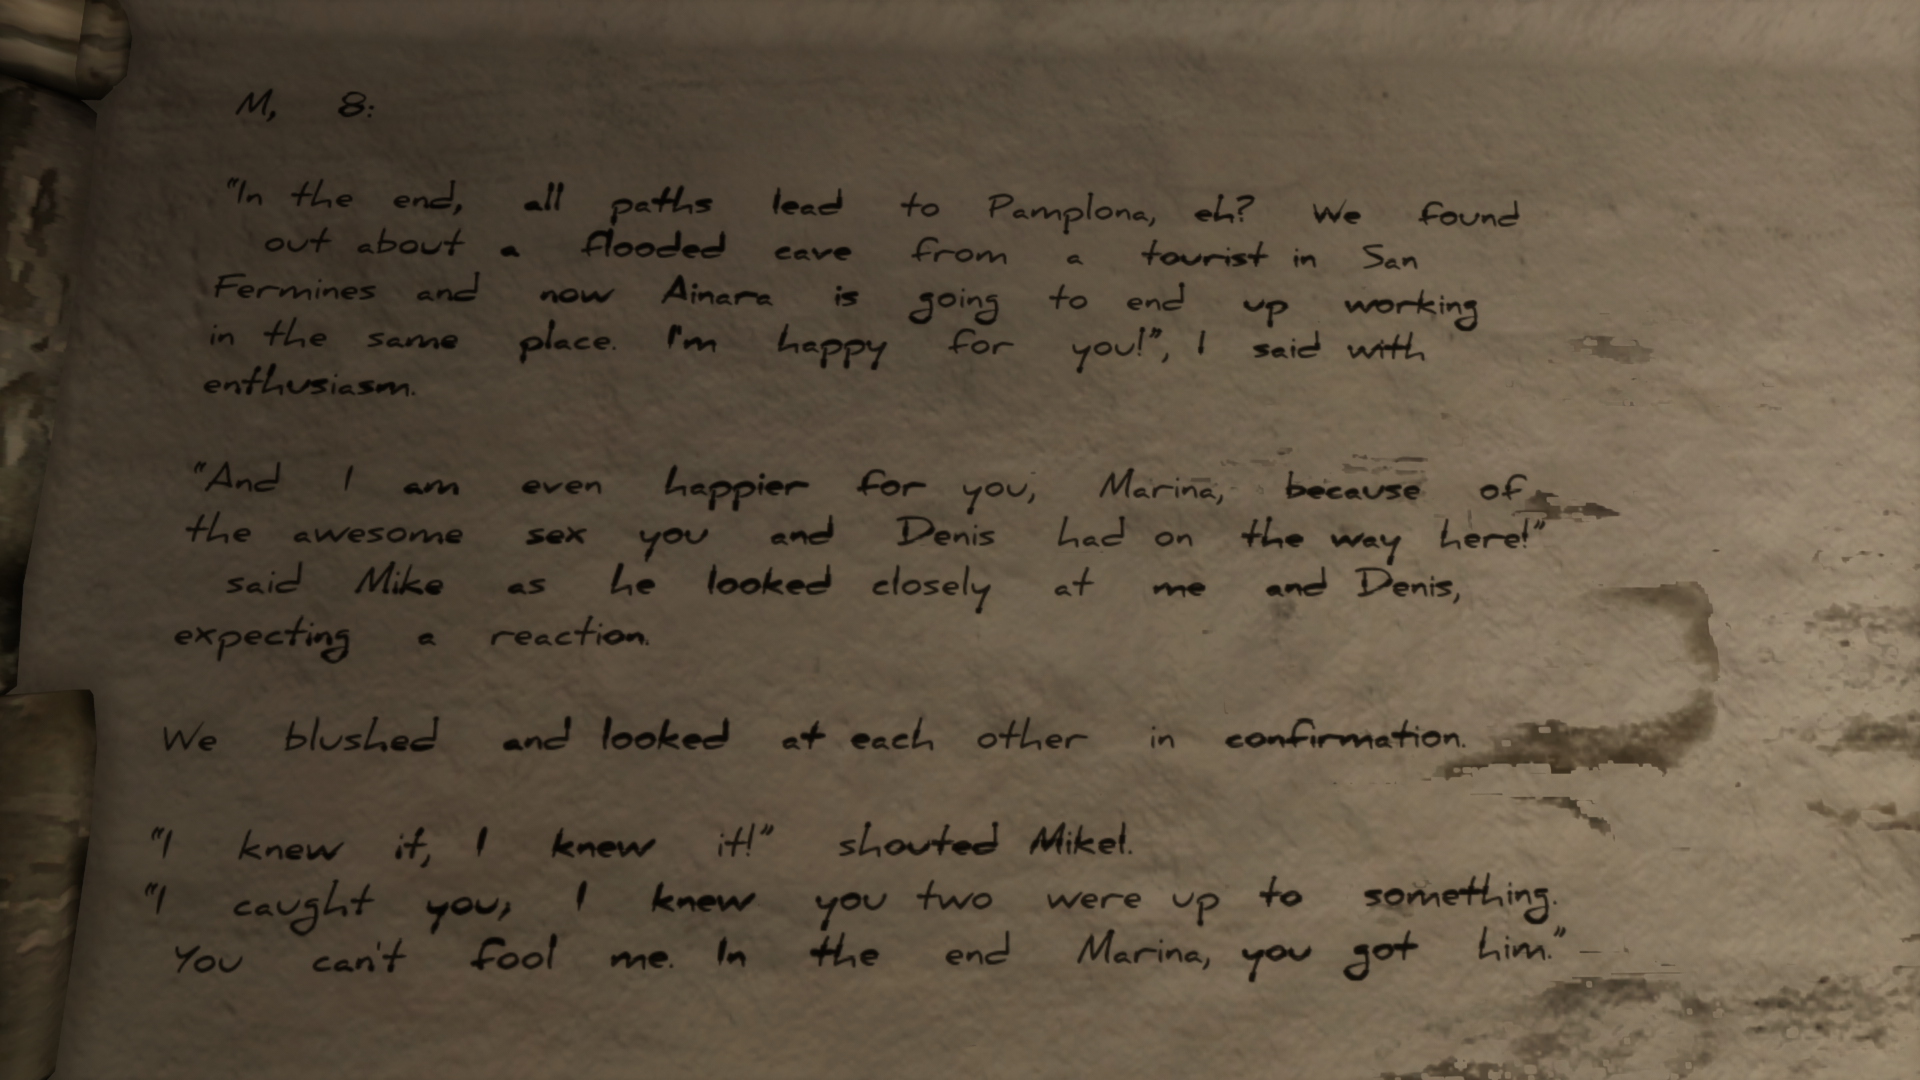 M, 8:
"In the end, all paths lead to Pamplona, eh? We found
out about a flooded cave from a tourist in San
Fermines and now Ainara is going to end up working
in the same place. I'm happy for you!", I said with
enthusiasm.
"And I am even happier for you, Marina, because of
the awesome sex you and Denis had on the way here!"
said Mike as he looked closely at me and Denis,
expecting a reaction.
We blushed and looked at each other in confirmation.
"I knew it, I knew it!" shouted Mikel.
"I caught you, I knew you two were up to something.
You can't fool me. In the end Marina, you got him."